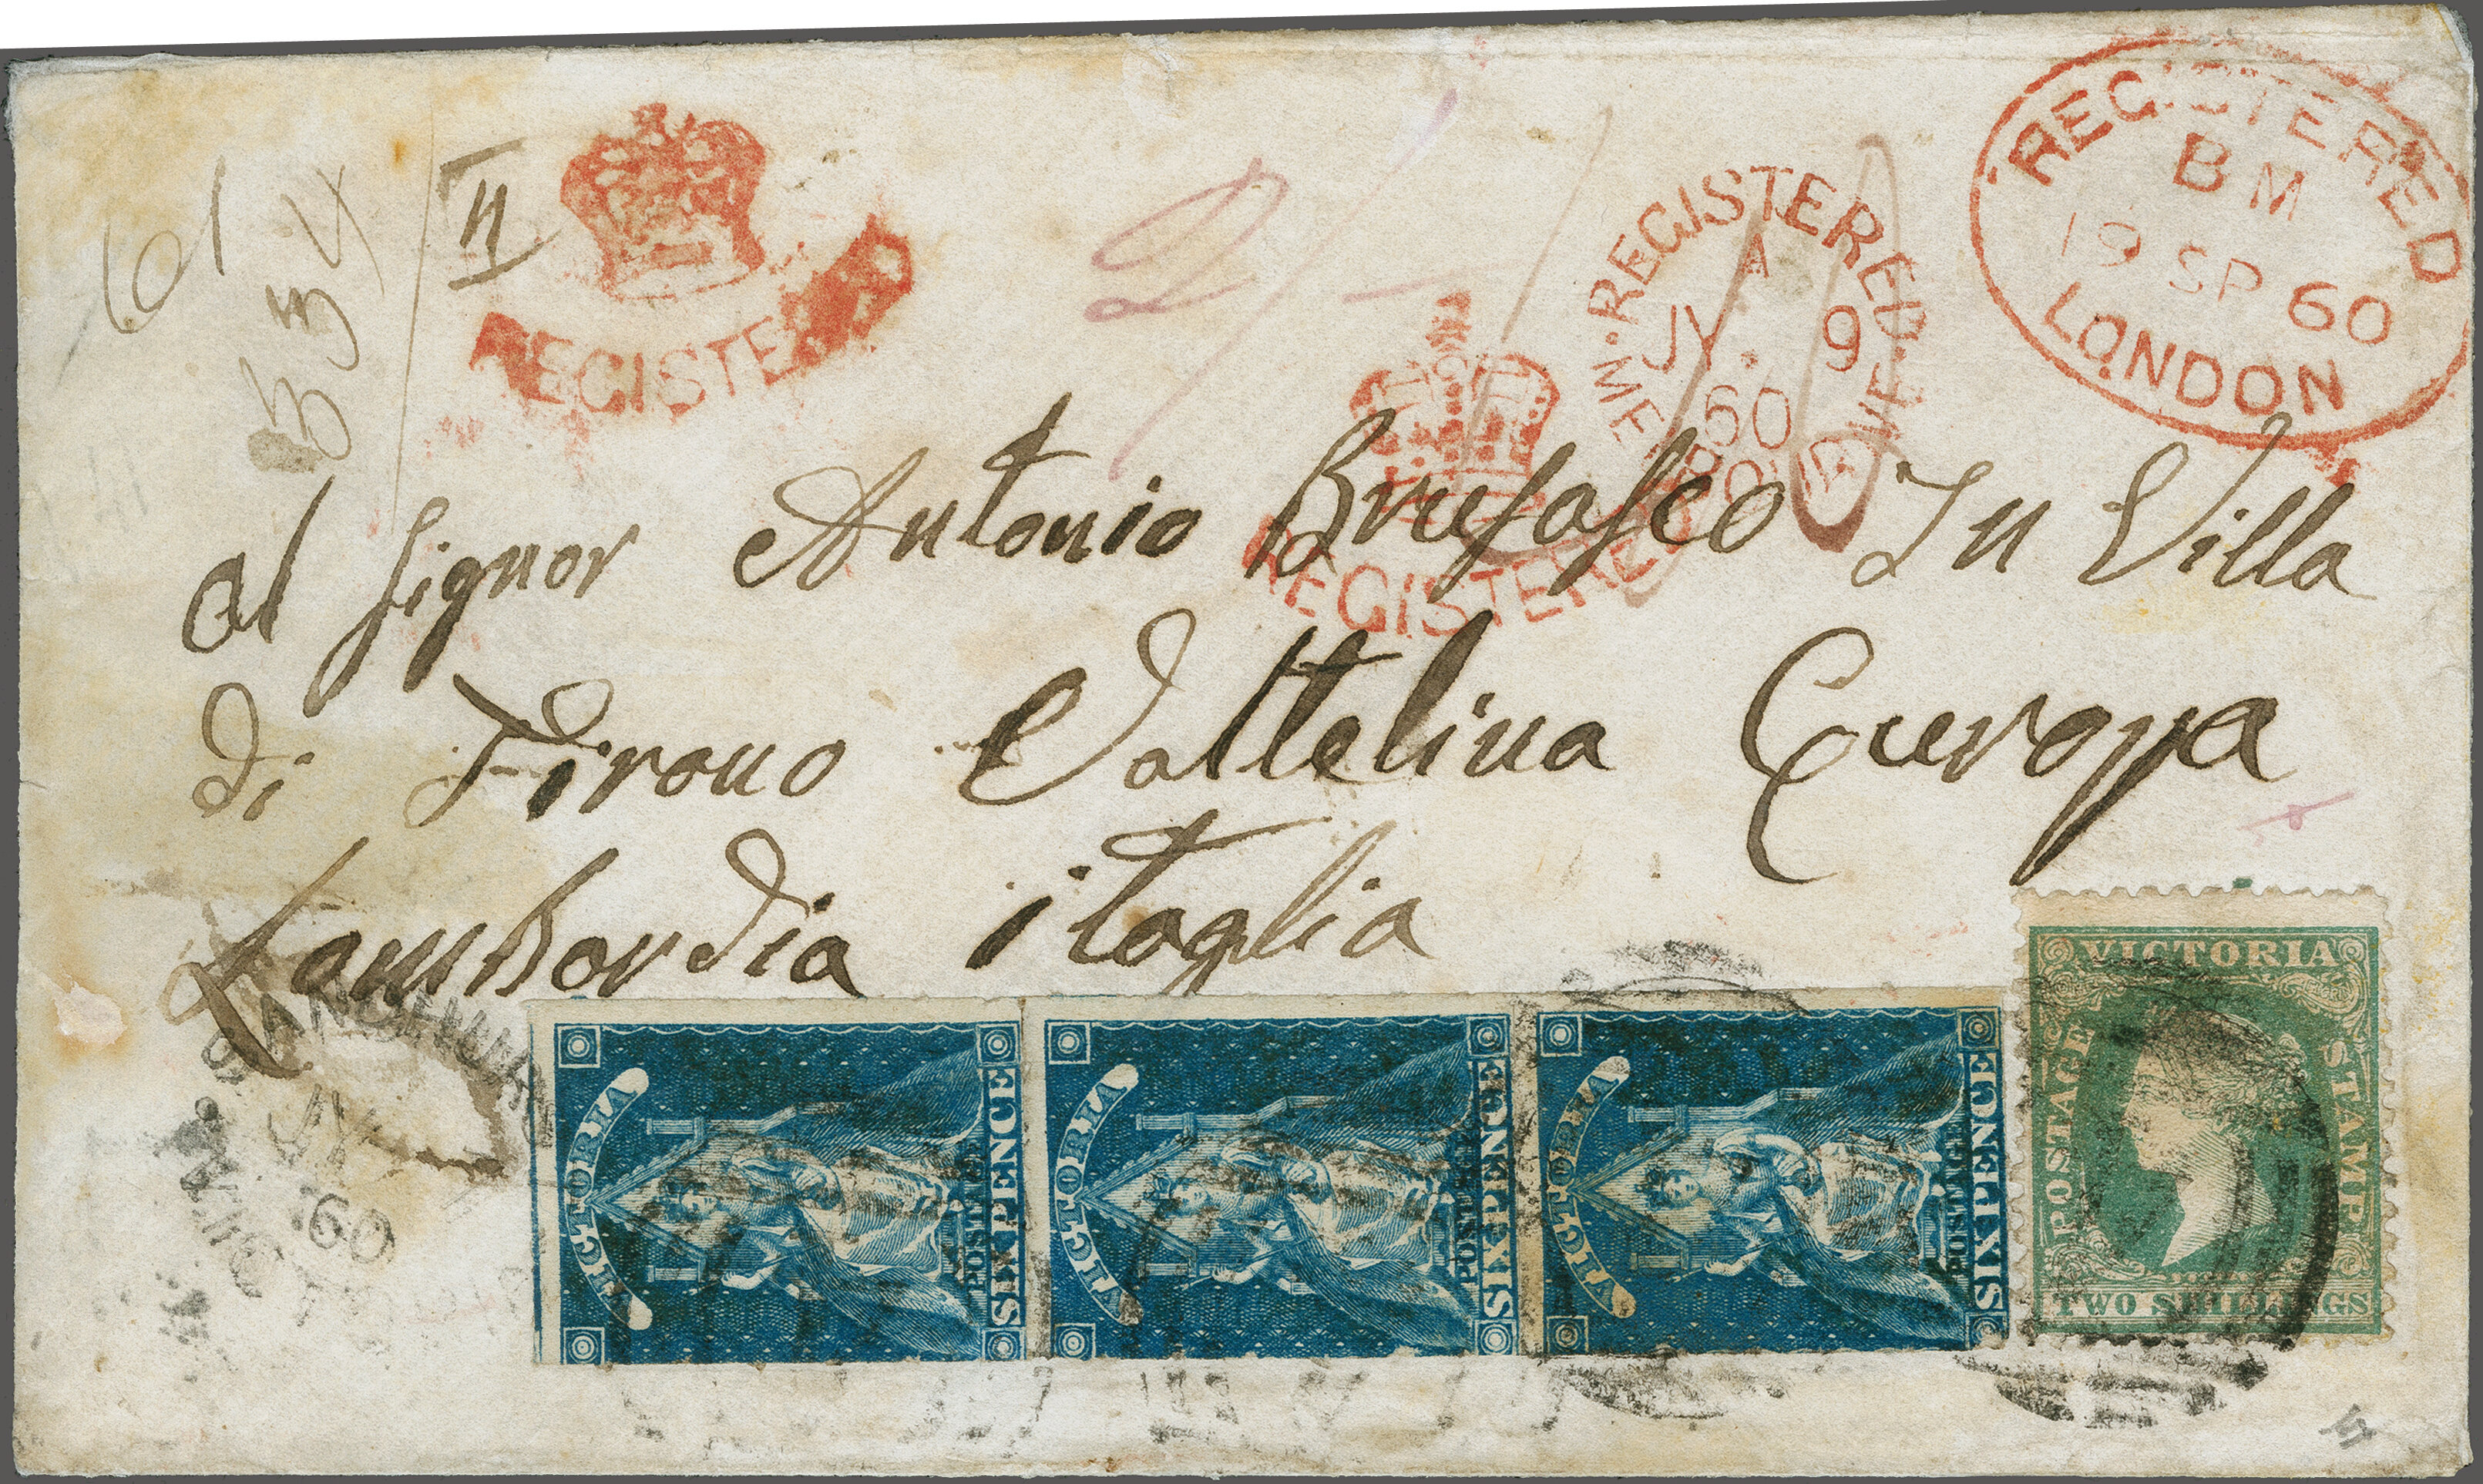 61
334
II
REGISTERED
REGISTERED
A
JY 9
60
REGISTERED
BM
19 SP 60
LONDON
REGISTERED
al Signor Antonio Brusasco In Villa
di Tirano Valtelina Europa
Lombardia itaglia
SANDHURST
JY
60
VICTORIA
SIX PENCE
POSTAGE
VICTORIA
SIX PENCE
POSTAGE
VICTORIA
SIX PENCE
POSTAGE
VICTORIA
POSTAGE
STAMP
TWO SHILLINGS